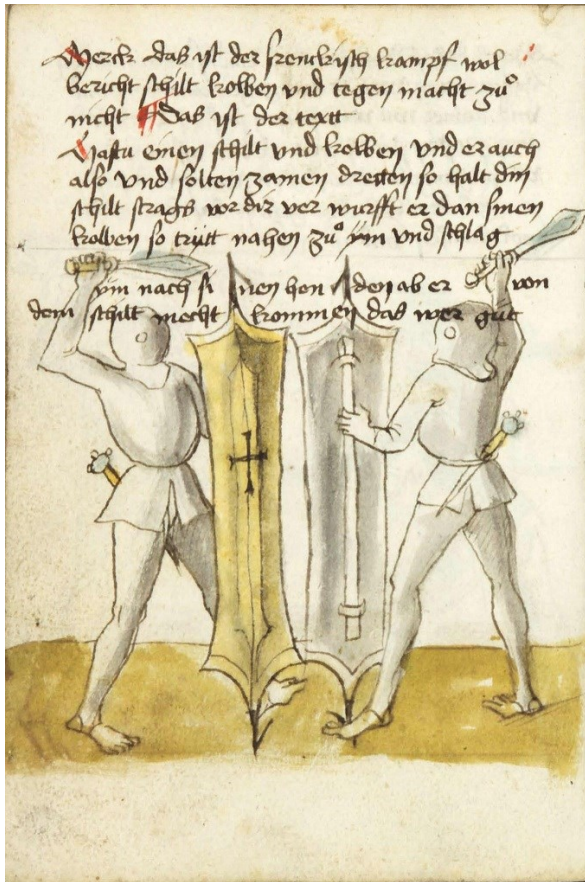 Merck das ist der frenckisch krampf wol
bericht schilt kolben und tegen macht zuͦ
nicht ¶ Das ist der textt
Hastu einen schilt und kolben und er auch
also und solten zamen dretten so halt din
schilt strags vor dir ver wurfft er dan sinen
kolben so tritt nahen zuͦ ym und schlag
ym nach si nen hon den ab er von
dem schilt mecht kommen das wer gut